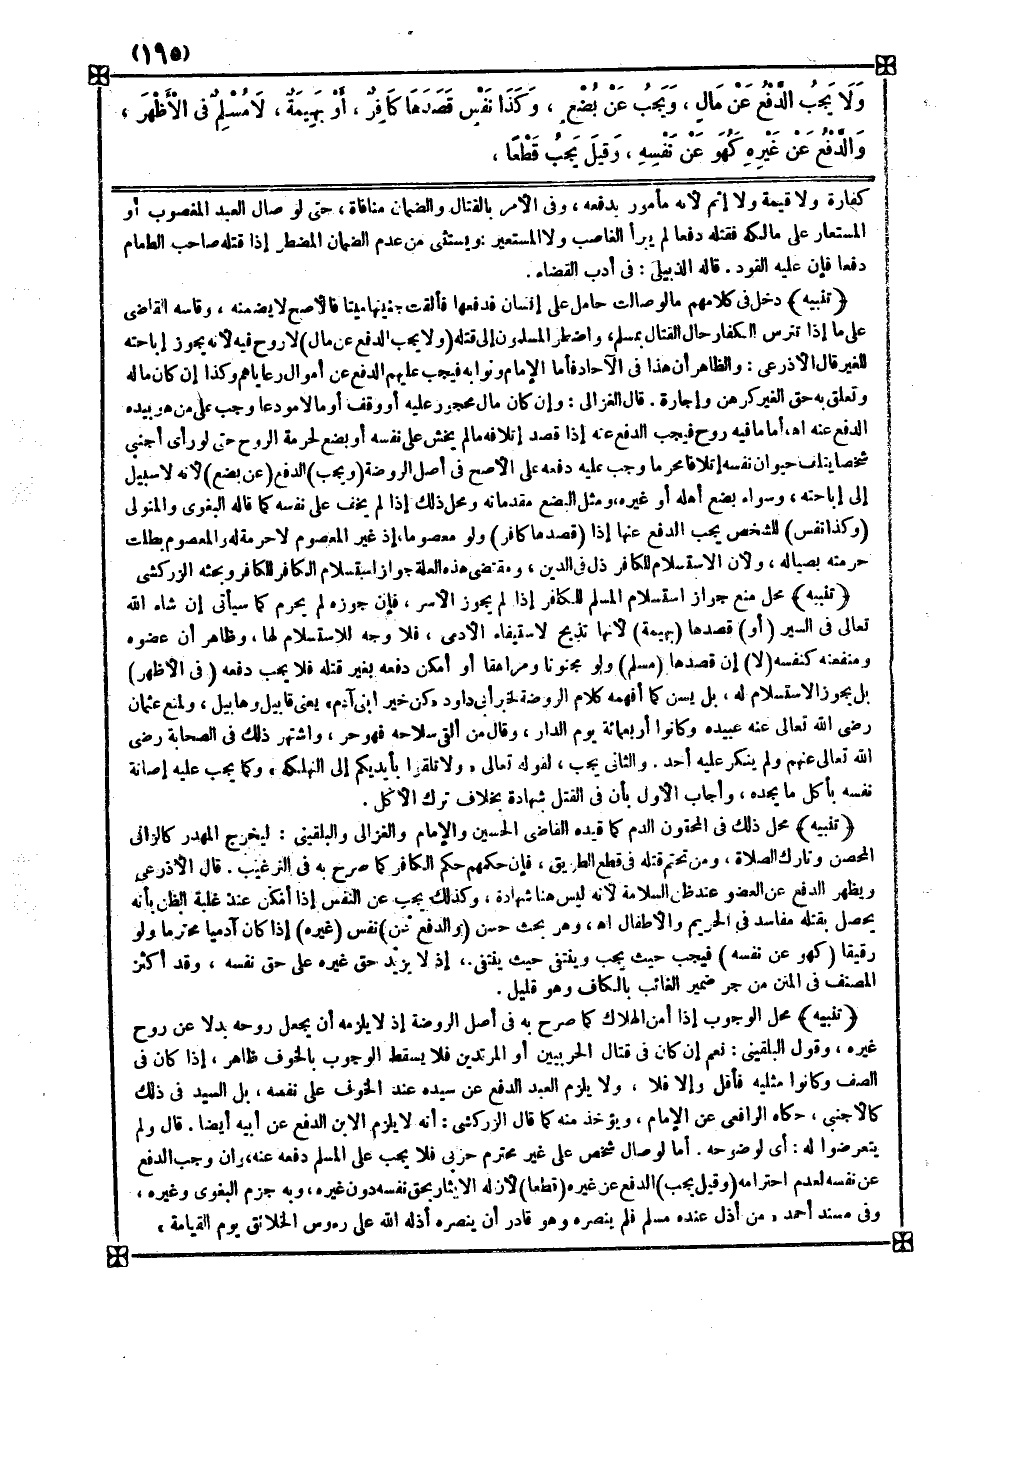 (١٩٥)
وَلَا يَجِبُ الدَّفْعُ عَنْ مَالٍ ، وَيَجِبُ عَنْ بُضْعٍ ، وَكَذَا نَفْسٍ قَصَدَهَا كَافِرٌ ، أَوْ بَهِيمَةٌ ، لَا مُسْلِمٌ فِى الْأَظْهَرِ ،
وَالدَّفْعُ عَنْ غَيْرِهِ كَهُوَ عَنْ نَفْسِهِ ، وَقِيلَ يَجِبُ قَطْعًا ،
كفارة ولا قيمة ولا إثم لأنه مأمور بدفعه ، وفى الأمر بالقتال والضمان منافاة ، حتى لو صال العبد المغصوب أو
المستعار على مالكه فقتله دفعا لم يبرأ الغاصب ولا المستعير : ويستثنى من عدم الضمان المضطر إذا قتله صاحب الطعام
دفعا فإن عليه القود . قاله الزبيلى : فى أدب القضاء .
﴿ تنبيه ﴾ دخل فى كلامهم مالو صالت حامل على إنسان فدفعها فألقت جنينها ميتا فالأصح لا يضمنه ، وقاسه القاضى
على ما إذا تترس الكفار حال القتال بمسلم ، واضطر المسلمون إلى قتله (ولا يجب الدفع عن مال) لا روح فيه لأنه يجوز إباحته
للغير قال الأذرعى : والظاهر أن هذا فى الآحاد فأما الإمام ونوابه فيجب عليهم الدفع عن أموال رعاياهم وكذا إن كان ماله
وتعلق به حق الغير كرهن وإجارة . قال الغزالى : وإن كان مال محجور عليه أو وقف أو مالا مودعا وجب على من هو بيده
الدفع عنه اه ، أما ما فيه روح فيجب الدفع عنه إذا قصد إتلافه مالم يخش على نفسه أو بضع لحرمة الروح حتى لو رأى أجنبى
شخصا يتلف حيوان نفسه إتلافا محرما وجب عليه دفعه على الأصح فى أصل الروضة (ويجب) الدفع (عن بضع) لأنه لا سبيل
إلى إباحته ، وسواء بضع أهله أو غيره ، ومثل البضع مقدماته ومحل ذلك إذا لم يخف على نفسه كما قاله البغوى والمتولى
(وكذا نفس) للشخص يجب الدفع عنها إذا (قصدها كافر) ولو معصوما ، إذ غير المعصوم لا حرمة له والمعصوم بطلت
حرمته بصياله ، ولأن الاستسلام للكافر ذل فى الدين ، ومقتضى هذه العلة جواز استسلام الكافر للكافر وبحثه الزركشى
﴿ تنبيه ﴾ محل منع جواز استسلام المسلم للكافر إذا لم يجوز الأسر ، فإن جوزه لم يحرم كما سيأتى إن شاء الله
تعالى فى السير (أو) قصدها (بهيمة) لأنها تذبح لاستيفاء الآدمى ، فلا وجه للاستسلام لها ، وظاهر أن عضوه
ومنفعته كنفسه (لا) إن قصدها (مسلم) ولو مجنونا ومراهقا أو أمكن دفعه بغير قتله فلا يجب دفعه ( فى الأظهر )
بل يجوز الاستسلام له ، بل يسن كما أفهمه كلام الروضة لخبر أبى داود « كن خير ابنى آدم » يعنى قابيل وهابيل ، ولمنع عثمان
رضى الله تعالى عنه عبيده وكانوا أربعمائة يوم الدار ، وقال من ألقى سلاحه فهو حر ، واشتهر ذلك فى الصحابة رضى
الله تعالى عنهم ولم ينكر عليه أحد . والثانى يجب ، لقوله تعالى « ولا تلقوا بأيديكم إلى التهلكة » وكما يجب عليه إصانة
نفسه بأكل ما يجده ، وأجاب الأول بأن فى القتل شهادة بخلاف ترك الأكل .
﴿ تنبيه ﴾ محل ذلك فى المحقون الدم كما قيده القاضى الحسين والإمام والغزالى والبلقينى : ليخرج المهدر كالزانى
المحصن وتارك الصلاة ، ومن تحتم قتله فى قطع الطريق ، فإن حكمهم حكم الكافر كما صرح به فى الترغيب . قال الأذرعى
ويظهر الدفع عن العضو عند ظن السلامة لأنه ليس هنا شهادة ، وكذلك يجب عن النفس إذا أمكن عند غلبة الظن بأنه
يحصل بقتله مفاسد فى الحريم والأطفال اه ، وهو بحث حسن (والدفع عن) نفس (غيره) إذا كان آدميا محترما ولو
رقيقا (كهو عن نفسه) فيجب حيث يجب وينتفى حيث ينتفى . ، إذ لا يزيد حق غيره على حق نفسه ، وقد أكثر
المصنف فى المتن من جر ضمير الغائب بالكاف وهو قليل .
﴿ تنبيه ﴾ محل الوجوب إذا أمن الهلاك كما صرح به فى أصل الروضة إذ لا يلزمه أن يجعل روحه بدلا عن روح
غيره ، وقول البلقينى : نعم إن كان فى قتال الحربيين أو المرتدين فلا يسقط الوجوب بالخوف ظاهر ، إذا كان فى
الصف وكانوا مثليه فأقل وإلا فلا ، ولا يلزم العبد الدفع عن سيده عند الخوف على نفسه ، بل السيد فى ذلك
كالأجنبى ، حكاه الرافعى عن الإمام ، ويؤخذ منه كما قال الزركشى : أنه لا يلزم الابن الدفع عن أبيه أيضا . قال ولم
يتعرضوا له : أى لوضوحه . أما لو صال شخص على غير محترم حربى فلا يجب على المسلم دفعه عنه ، وإن وجب الدفع
عن نفسه لعدم احترامه (وقيل يجب) الدفع عن غيره (قطعا) لأن له الإيثار بحق نفسه دون غيره ، وبه جزم البغوى وغيره ،
وفى مسند أحمد « من أذل عنده مسلم فلم ينصره وهو قادر أن ينصره أذله الله على رءوس الخلائق يوم القيامة »